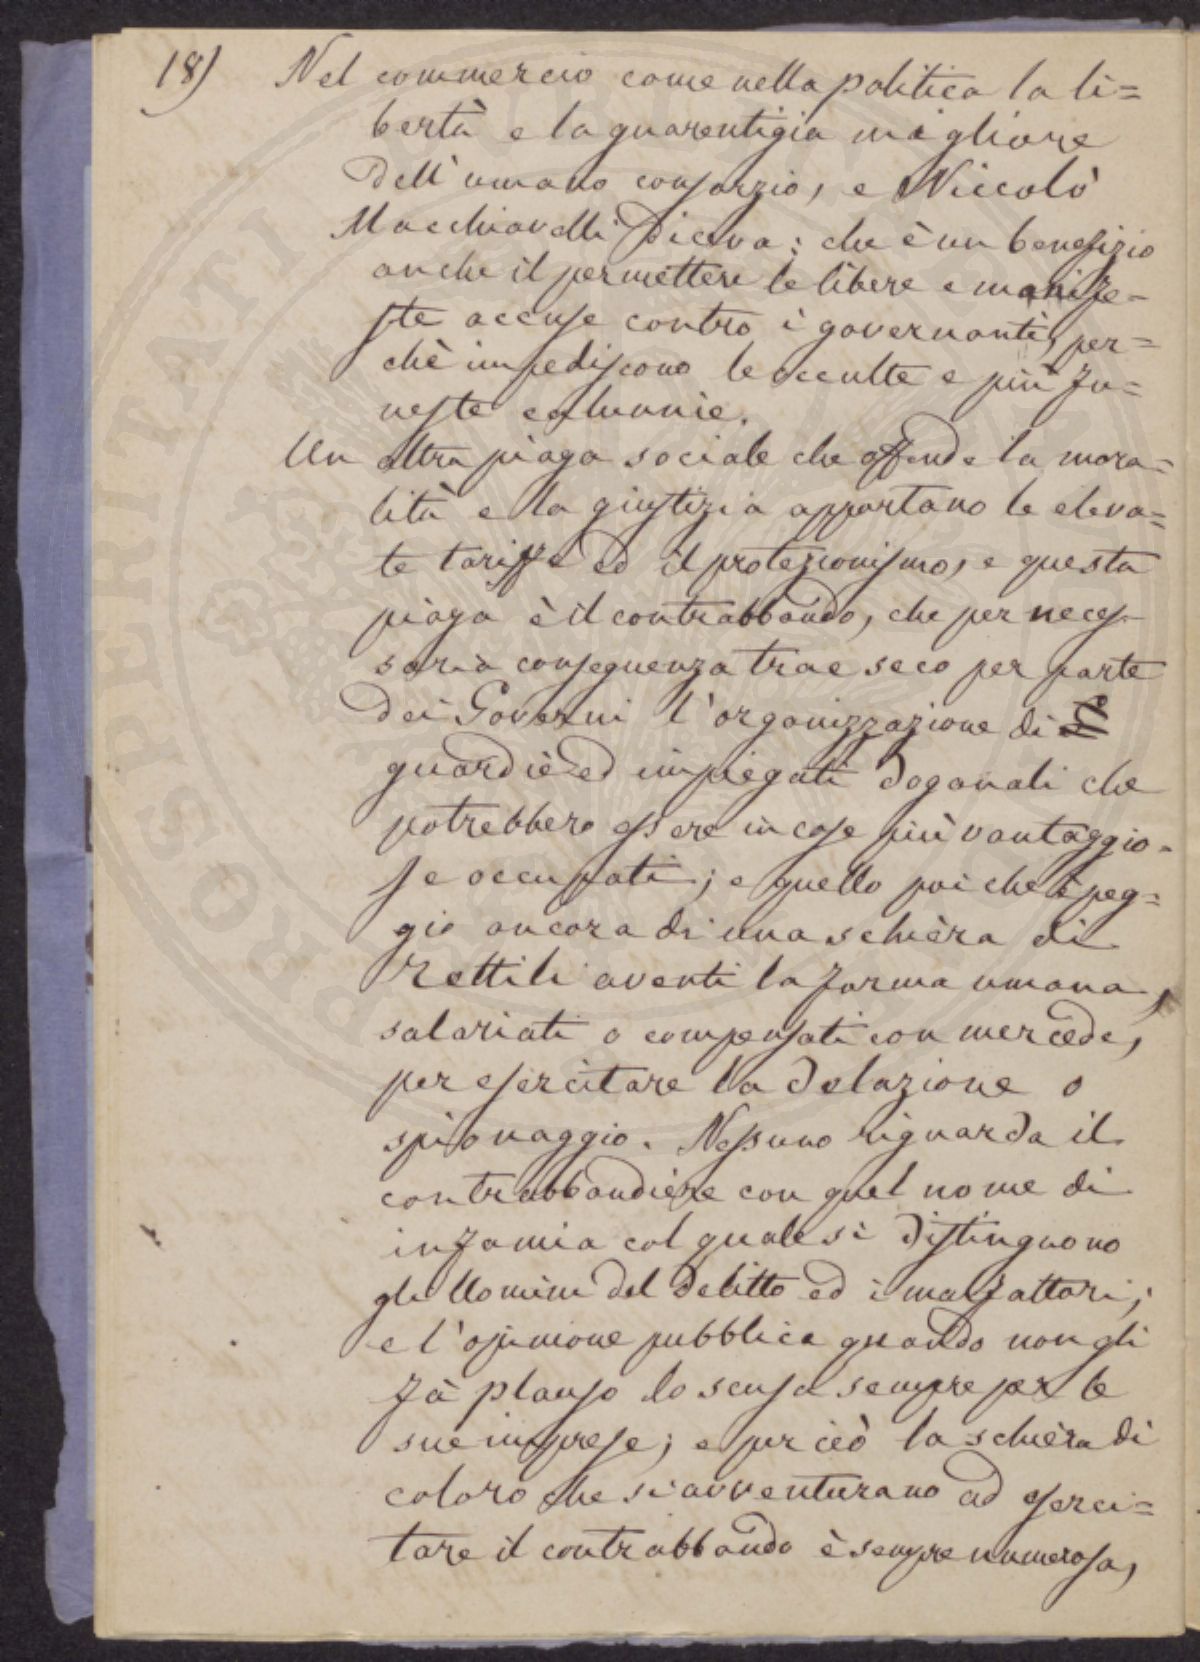 18) Nel commercio come nella politica la li=
bertà e la guarentigia migliore
dell'umano consorzio, e Niccolò
Macchiavelli diceva: che è un benefizio
anche il permettere le libere e manife=
ste accuse contro i governanti, per=
chè impediscono le occulte e più fu=
neste calunnie.
Un altra piaga sociale che offende la mora=
lità e la giustizia apportano le eleva=
te tariffe ed il protezionismo, e questa
piaga è il contrabbando, che per neces-
saria conseguenza trae seco per parte
dei Governi l'organizzazione di
guardie ed impiegati doganali che
potrebbero essere in cose più vantaggio=
se occupati; e quello poi che è peg=
gio ancora di una schiera di
rettili aventi la forma umana,
salariati o compensati con mercede,
per esercitare la delazione o
spionaggio. Nessuno riguarda il
contrabbandiere con quel nome di
infamia col quale si distinguono
gli Uomini del delitto ed i malfattori;
e l'opinione pubblica quando non gli
fà plauso lo scusa sempre per le
sue imprese; e per ciò la schiera di
coloro che si avventurano ad eserci=
tare il contrabbando è sempre numerosa,
PROSPERITATI PUBLICAE AUGENDAE